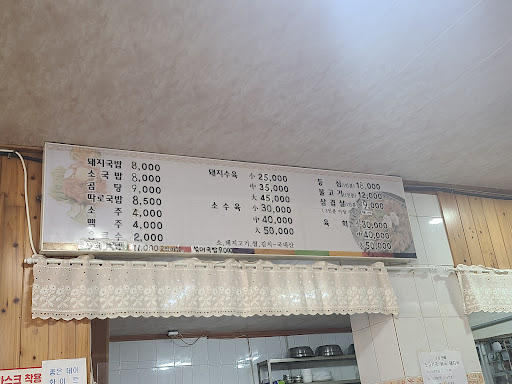 돼지국밥 8,000
소국밥 8,000
곰탕 9,000
따로국밥 8,500
소주 4,000
맥주 4,000
2,000
돼지수육 小 25,000
中 35,000
大 45,000
소수육 小 30,000
中 40,000
大 50,000
등심 18,000
불고기 12,000
삼겹살 9,000
육회 小 30,000
中 40,000
大 50,000
소,돼지고기,쌀,김치-국내산
마스크 착용
좋은 데이